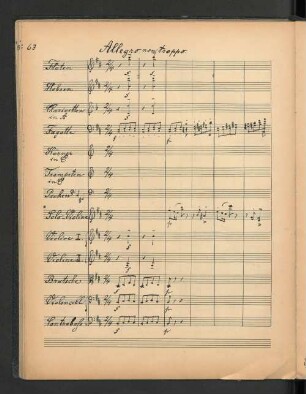 63
Allegro non troppo
Flöten
Hoboen
Clarinetten
in A
Fagotte
Trompeten
Solo-Violine
Violine I.
Violine II.
Bratsche
Violoncell
Contrabass